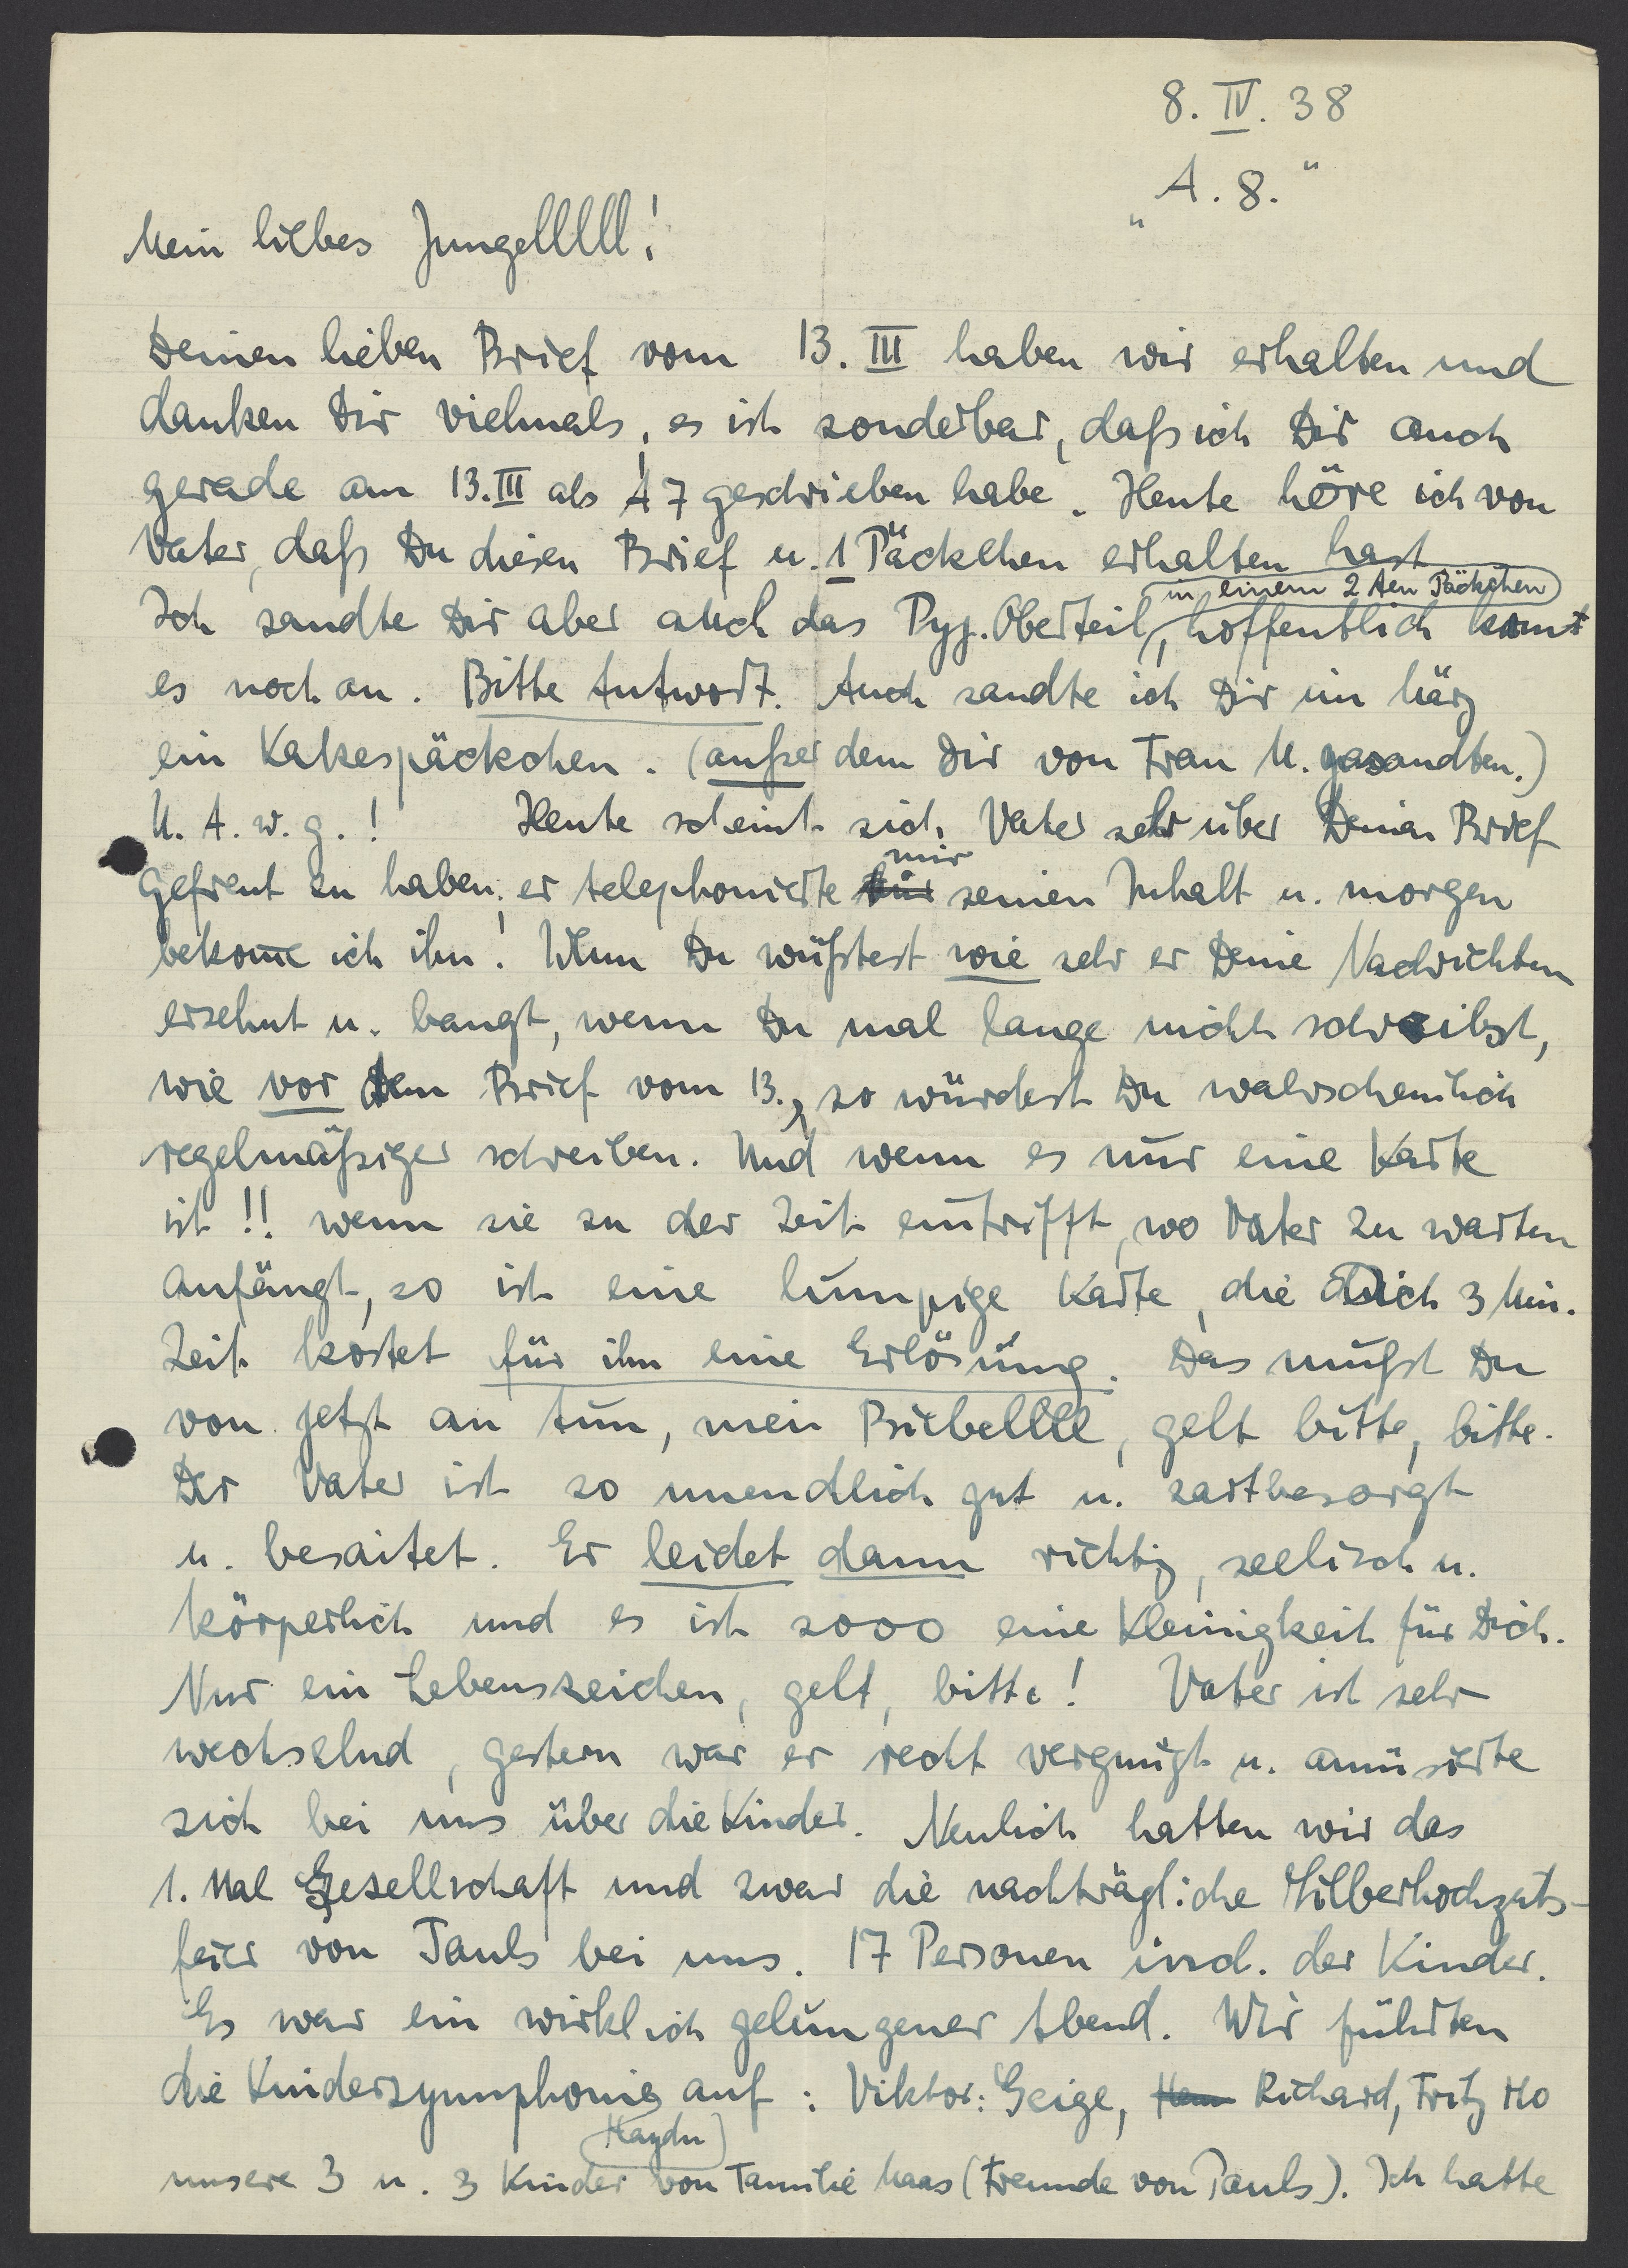 8. IV. 38
„A. 8."
Mein liebes Jungelllll!
Deinen lieben Brief vom 13. III haben wir erhalten und
danken Dir vielmals, es ist sonderbar, daß ich Dir auch
gerade am 13. III als A 7 geschrieben habe. Heute höre ich von
Vater, daß Du diesen Brief u. 1 Päckchen erhalten hast
in einem 2 ten Päckchen
Ich sandte Dir aber auch das Pyj. Oberteil, hoffentlich komt
es noch an. Bitte Antwort. Auch sandte ich Dir im März
ein Kakespäckchen. (außer dem Dir von Frau M. gesandten.)
U. A. w. g.! Heute scheint sich Vater sehr über Deinen Brief
mir
gefreut zu haben; er telephonierte seinen Inhalt u. morgen
bekome ich ihn! Wenn Du wüßtest wie sehr er Deine Nachrichten
ersehnt u. bangt, wenn Du mal lange nicht schreibst,
wie vor dem Brief vom 13., so würdest Du wahrscheinlich
regelmäßiger schreiben. Und wenn es nur eine Karte
ist!! wenn sie zu der Zeit eintrifft, wo Vater zu warten
anfängt, so ist eine lumpige Karte, die Dich 3 Min.
Zeit kostet für ihn eine Erlösung. Das mußt Du
von jetzt an tun, mein Biebellll, gelt bitte, bitte.
Der Vater ist so unendlich gut u. zartbesorgt
u. besaitet. Er leidet dann richtig, seelisch u.
körperlich und es ist sooo eine Kleinigkeit für Dich.
Nur ein Lebenszeichen, gelt, bitte! Vater ist sehr
wechselnd, gestern war er recht vergnügt u. amüsierte
sich bei uns über die Kinder. Neulich hatten wir das
1. Mal Gesellschaft und zwar die nachträgliche Silberhochzeits-
feier von Pauls bei uns. 17 Personen incl. der Kinder.
Es war ein wirklich gelungener Abend. Wir führten
die Kindersymphonie auf: Viktor: Geige, Richard, Fritz Mo
Haydn
unsere 3 u. 3 Kinder von Familie Maas (Freunde von Pauls). Ich hatte